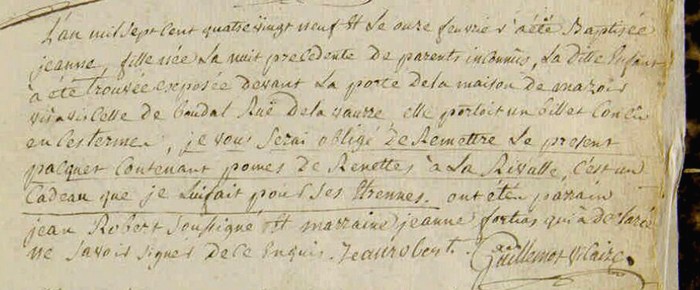 L'an mil sept cent quatre vingt neuf et le onze fevrie a été Baptisée
jeanne, fille née La nuit precedente de parents inconnus, La ditte Enfant
a été trouvée exposée devant La porte de la maison de mazois
visavis celle de boudal Ruë de la vaurre elle portoit un billet Concû
en Ces termes, je vous Serai obligé De Remettre Le present
pacquet Contenant pomes De Renettes à La Rivalle, C'est un
Cadeau que je Lui fait pour Ses Etrennes. ont été parrain
jean Robert Soussigné et marraine jeanne fortias qui a declaré
ne Savoir signer de Ce Enquis. Jean robert. Guillemot Vicaire